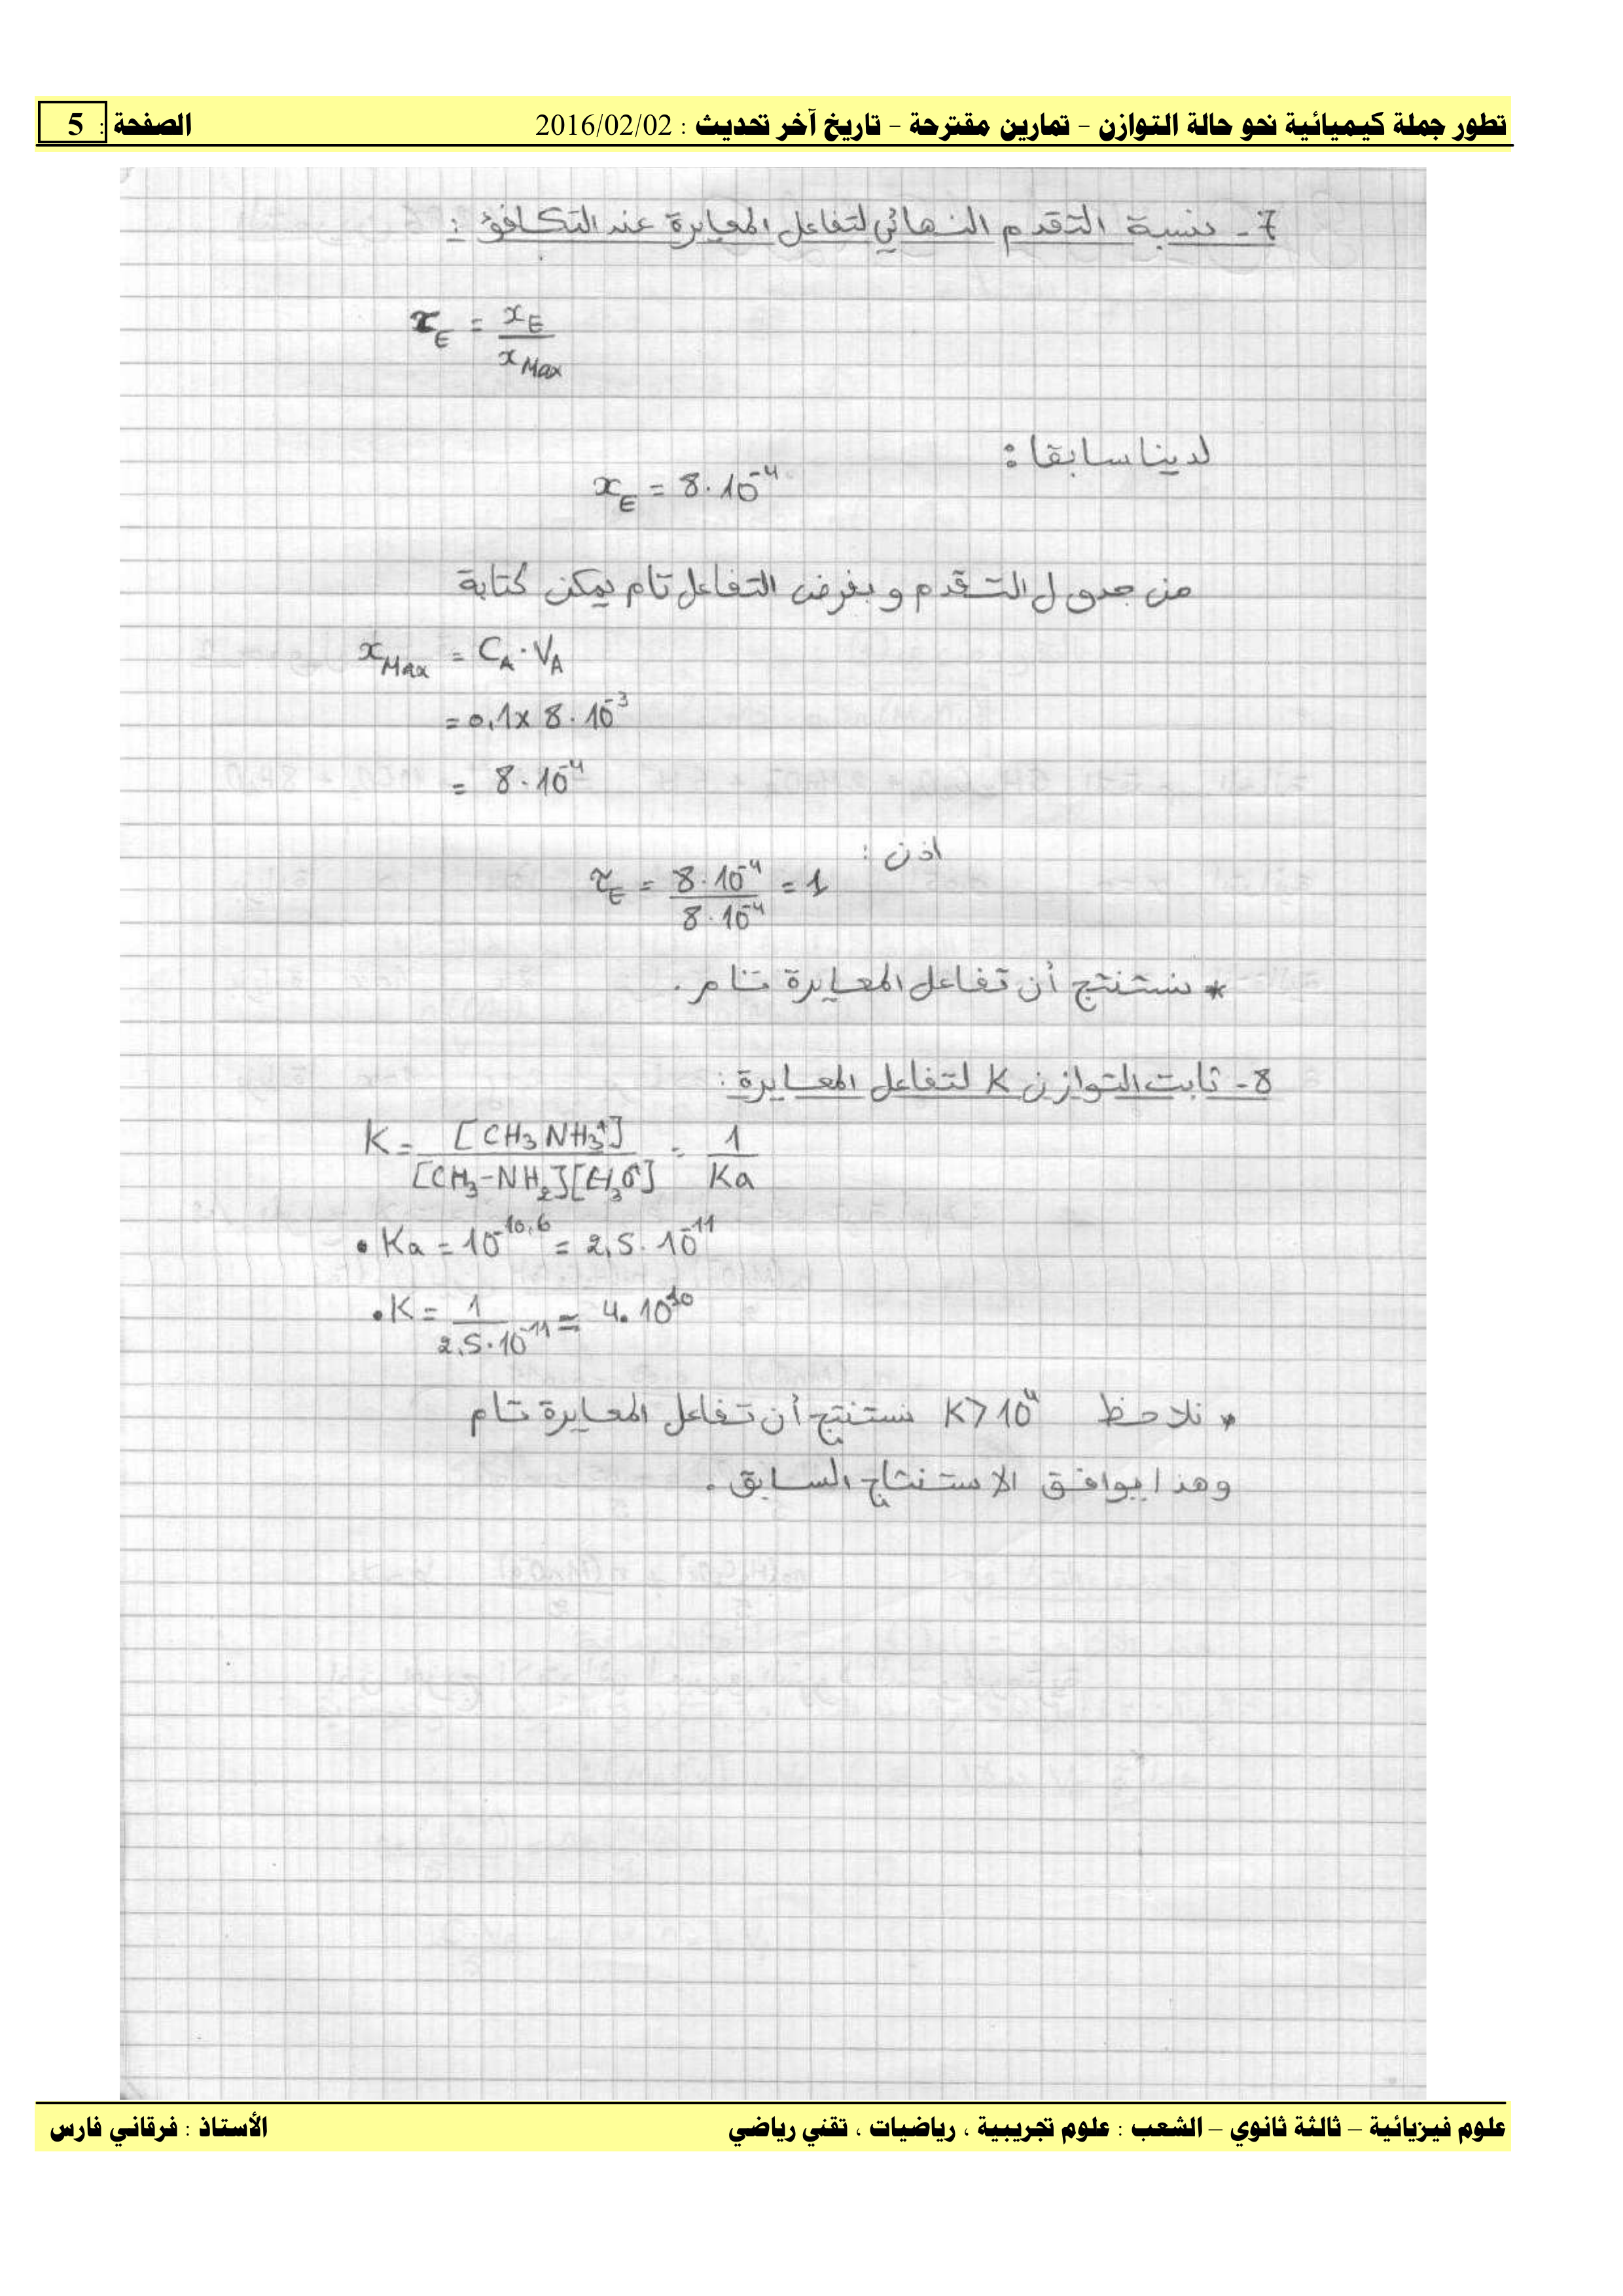 تطور جملة كيميائية نحو حالة التوازن - تمارين مقترحة - تاريخ آخر تحديث : 2016/02/02 الصفحة : 5
7- نسبة التقدم النهائي لتفاعل المعايرة عند التكافؤ :
τ_E = x_E / x_Max
لدينا سابقا :
x_E = 8.10⁻⁴
من جدول التقدم و بفرض التفاعل تام يمكن كتابة
x_Max = C_A . V_A
= 0,1 x 8.10⁻³
= 8.10⁻⁴
اذن :
τ_E = 8.10⁻⁴ / 8.10⁻⁴ = 1
* نستنتج أن تفاعل المعايرة تام .
8- ثابت التوازن K لتفاعل المعايرة :
K = [CH₃NH₃⁺] / [CH₃-NH₂][H₃O⁺] = 1 / Ka
• Ka = 10⁻¹⁰,⁶ = 2,5.10⁻¹¹
• K = 1 / 2,5.10⁻¹¹ ≈ 4.10¹⁰
* نلاحظ K > 10⁴ نستنتج أن تفاعل المعايرة تام
وهذا يوافق الاستنتاج السابق .
علوم فيزيائية – ثالثة ثانوي – الشعب : علوم تجريبية ، رياضيات ، تقني رياضي الأستاذ : فرقاني فارس